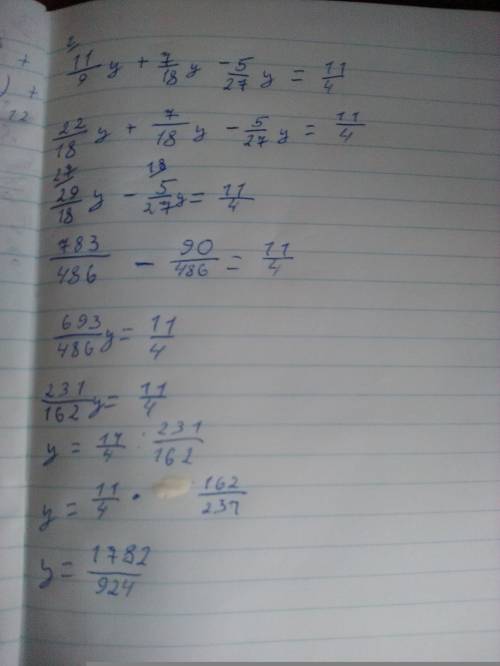 2
11/9 y + 7/18 y - 5/27 y = 11/4
22/18 y + 7/18 y - 5/27 y = 11/4
27 18
29/18 y - 5/27 y = 11/4
783/486 - 90/486 = 11/4
693/486 y = 11/4
231/162 y = 11/4
y = 11/4 : 231/162
y = 11/4 · 162/231
y = 1782/924
+
) +
12